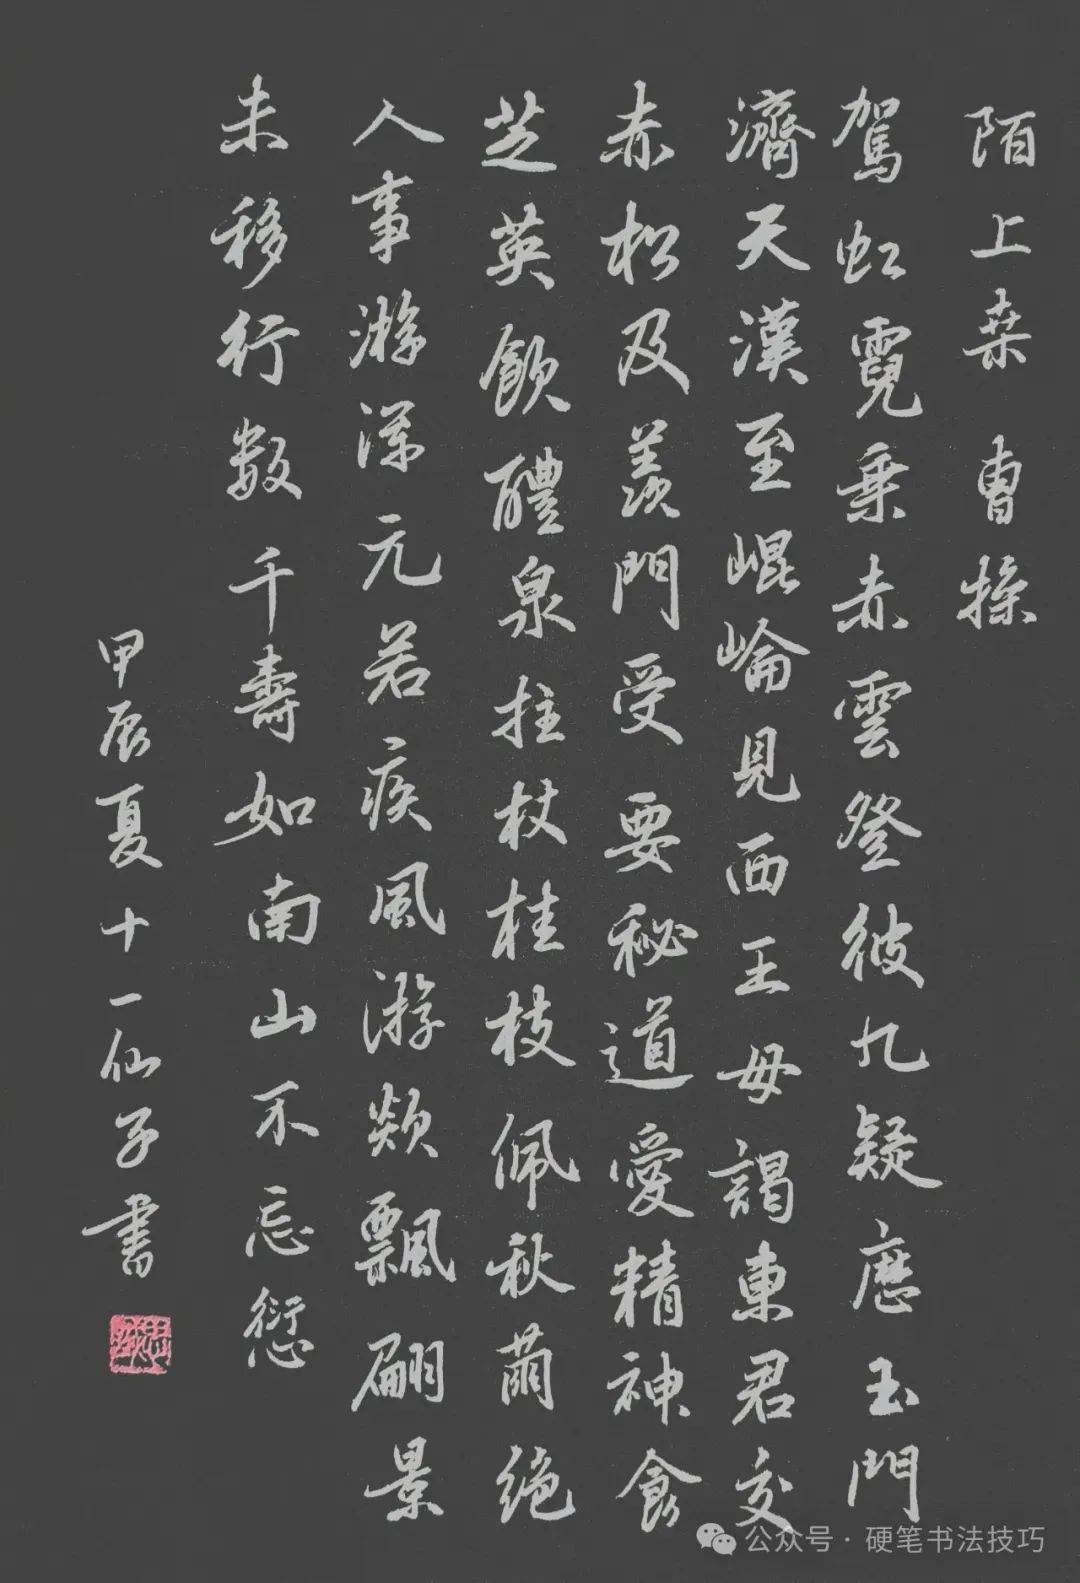 陌上桒 曹操
駕虹霓乗赤雲登彼九疑歷玉門
濟天漢至崐崘見西王母謁東君交
赤松及羨門受要秘道愛精神食
芝英飲醴泉拄杖桂枝佩秋蘭絕
人事游渾元若疾風游欻飄翩景
未移行数千壽如南山不忘愆
甲辰夏十一仙子書
公众号·硬笔书法技巧